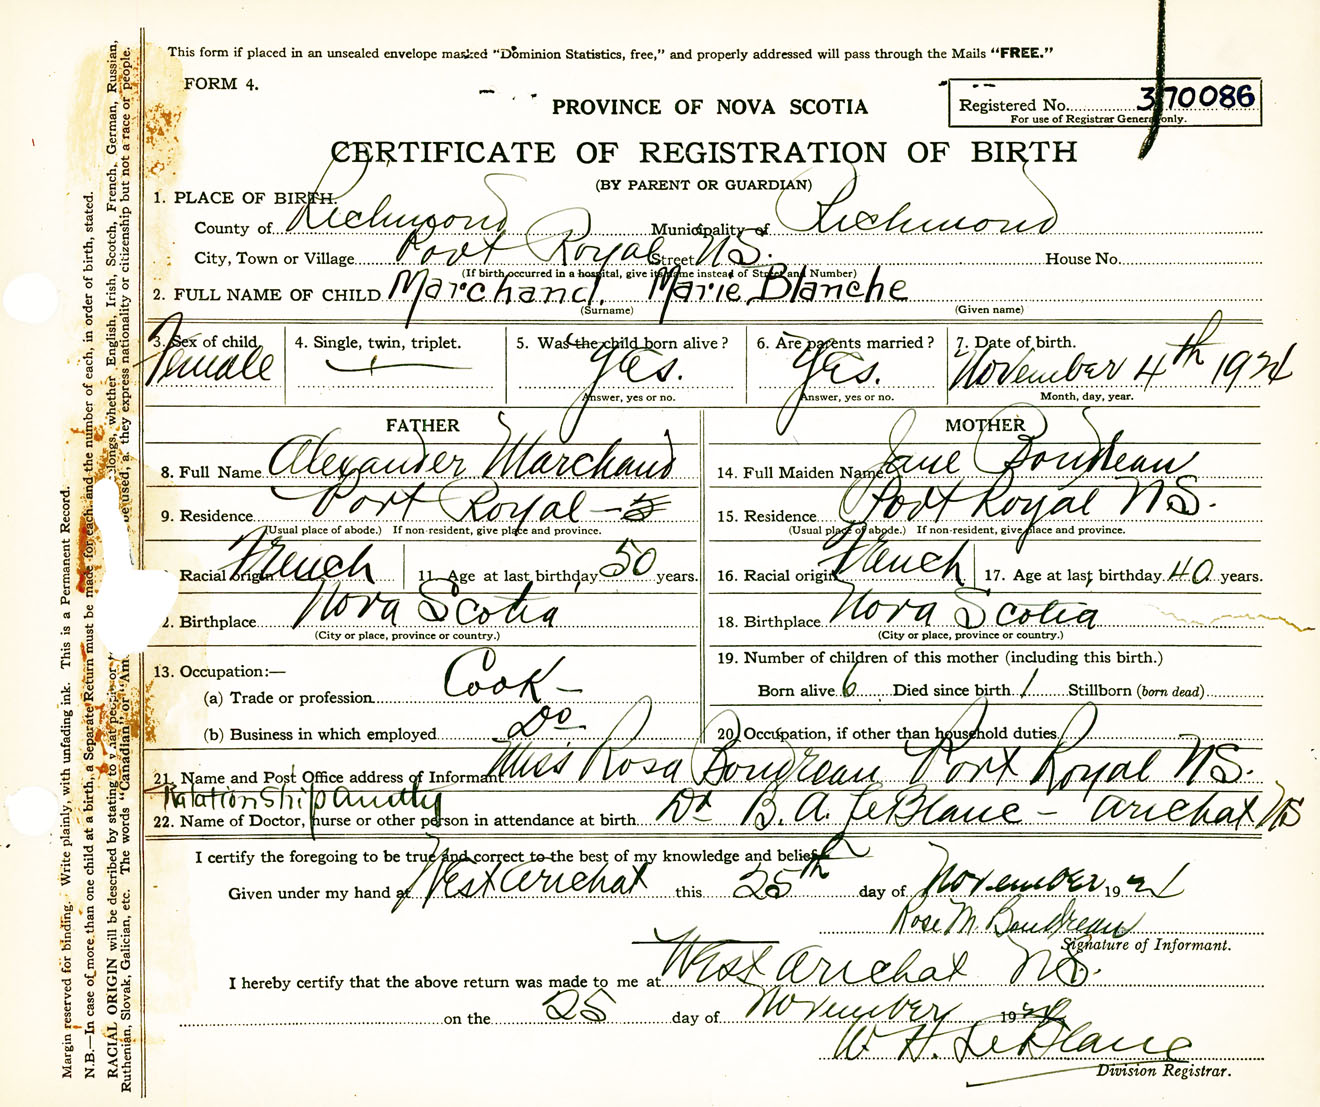 This form if placed in an unsealed envelope marked "Dominion Statistics, free," and properly addressed will pass through the Mails "FREE."
FORM 4.
PROVINCE OF NOVA SCOTIA
Registered No. 370086
For use of Registrar General only.
CERTIFICATE OF REGISTRATION OF BIRTH
(BY PARENT OR GUARDIAN)
1. PLACE OF BIRTH.
County of Richmond Municipality of Richmond
City, Town or Village Port Royal Street N.S. House No.
(If birth occurred in a hospital, give its name instead of Street and Number)
2. FULL NAME OF CHILD Marchand, Marie Blanche
(Surname) (Given name)
3. Sex of child. Female
4. Single, twin, triplet.
5. Was the child born alive? Yes.
Answer, yes or no.
6. Are parents married? Yes.
Answer, yes or no.
7. Date of birth. November 4th
Month, day, year.
FATHER
8. Full Name Alexander Marchand
9. Residence Port Royal
(Usual place of abode.) If non-resident, give place and province.
Racial origin French
11. Age at last birthday 50 years.
2. Birthplace Nova Scotia
(City or place, province or country.)
13. Occupation:—
(a) Trade or profession Cook –
(b) Business in which employed Do
MOTHER
14. Full Maiden Name Jane Boudreau
15. Residence Port Royal N.S.
(Usual place of abode.) If non-resident, give place and province.
16. Racial origin French
17. Age at last birthday 40 years.
18. Birthplace Nova Scotia
(City or place, province or country.)
19. Number of children of this mother (including this birth.)
Born alive 6 Died since birth 1 Stillborn (born dead)
20. Occupation, if other than household duties
21. Name and Post Office address of Informant Miss Rosa Boudreau Port Royal N.S.
Relationship
22. Name of Doctor, nurse or other person in attendance at birth Dr B. A. LeBlanc – Arichat NS
I certify the foregoing to be true and correct to the best of my knowledge and belief.
Given under my hand at West Arichat this 25th day of November 19
Rose M. Boudreau
Signature of Informant.
I hereby certify that the above return was made to me at West Arichat N.S.
on the 25 day of November 19
W. H. LeBlanc
Division Registrar.
Margin reserved for binding. Write plainly, with unfading ink. This is a Permanent Record.
N.B.—In case of more than one child at a birth, a Separate Return must be made for each and the number of each, in order of birth, stated.
RACIAL ORIGIN will be described by stating to what people or belongs, whether English, Irish, Scotch, French, German, Russian,
Ruthenian, Slovak, Galician, etc. The words "Canadian" or "Am be used, as they express nationality or citizenship but not a race or people.